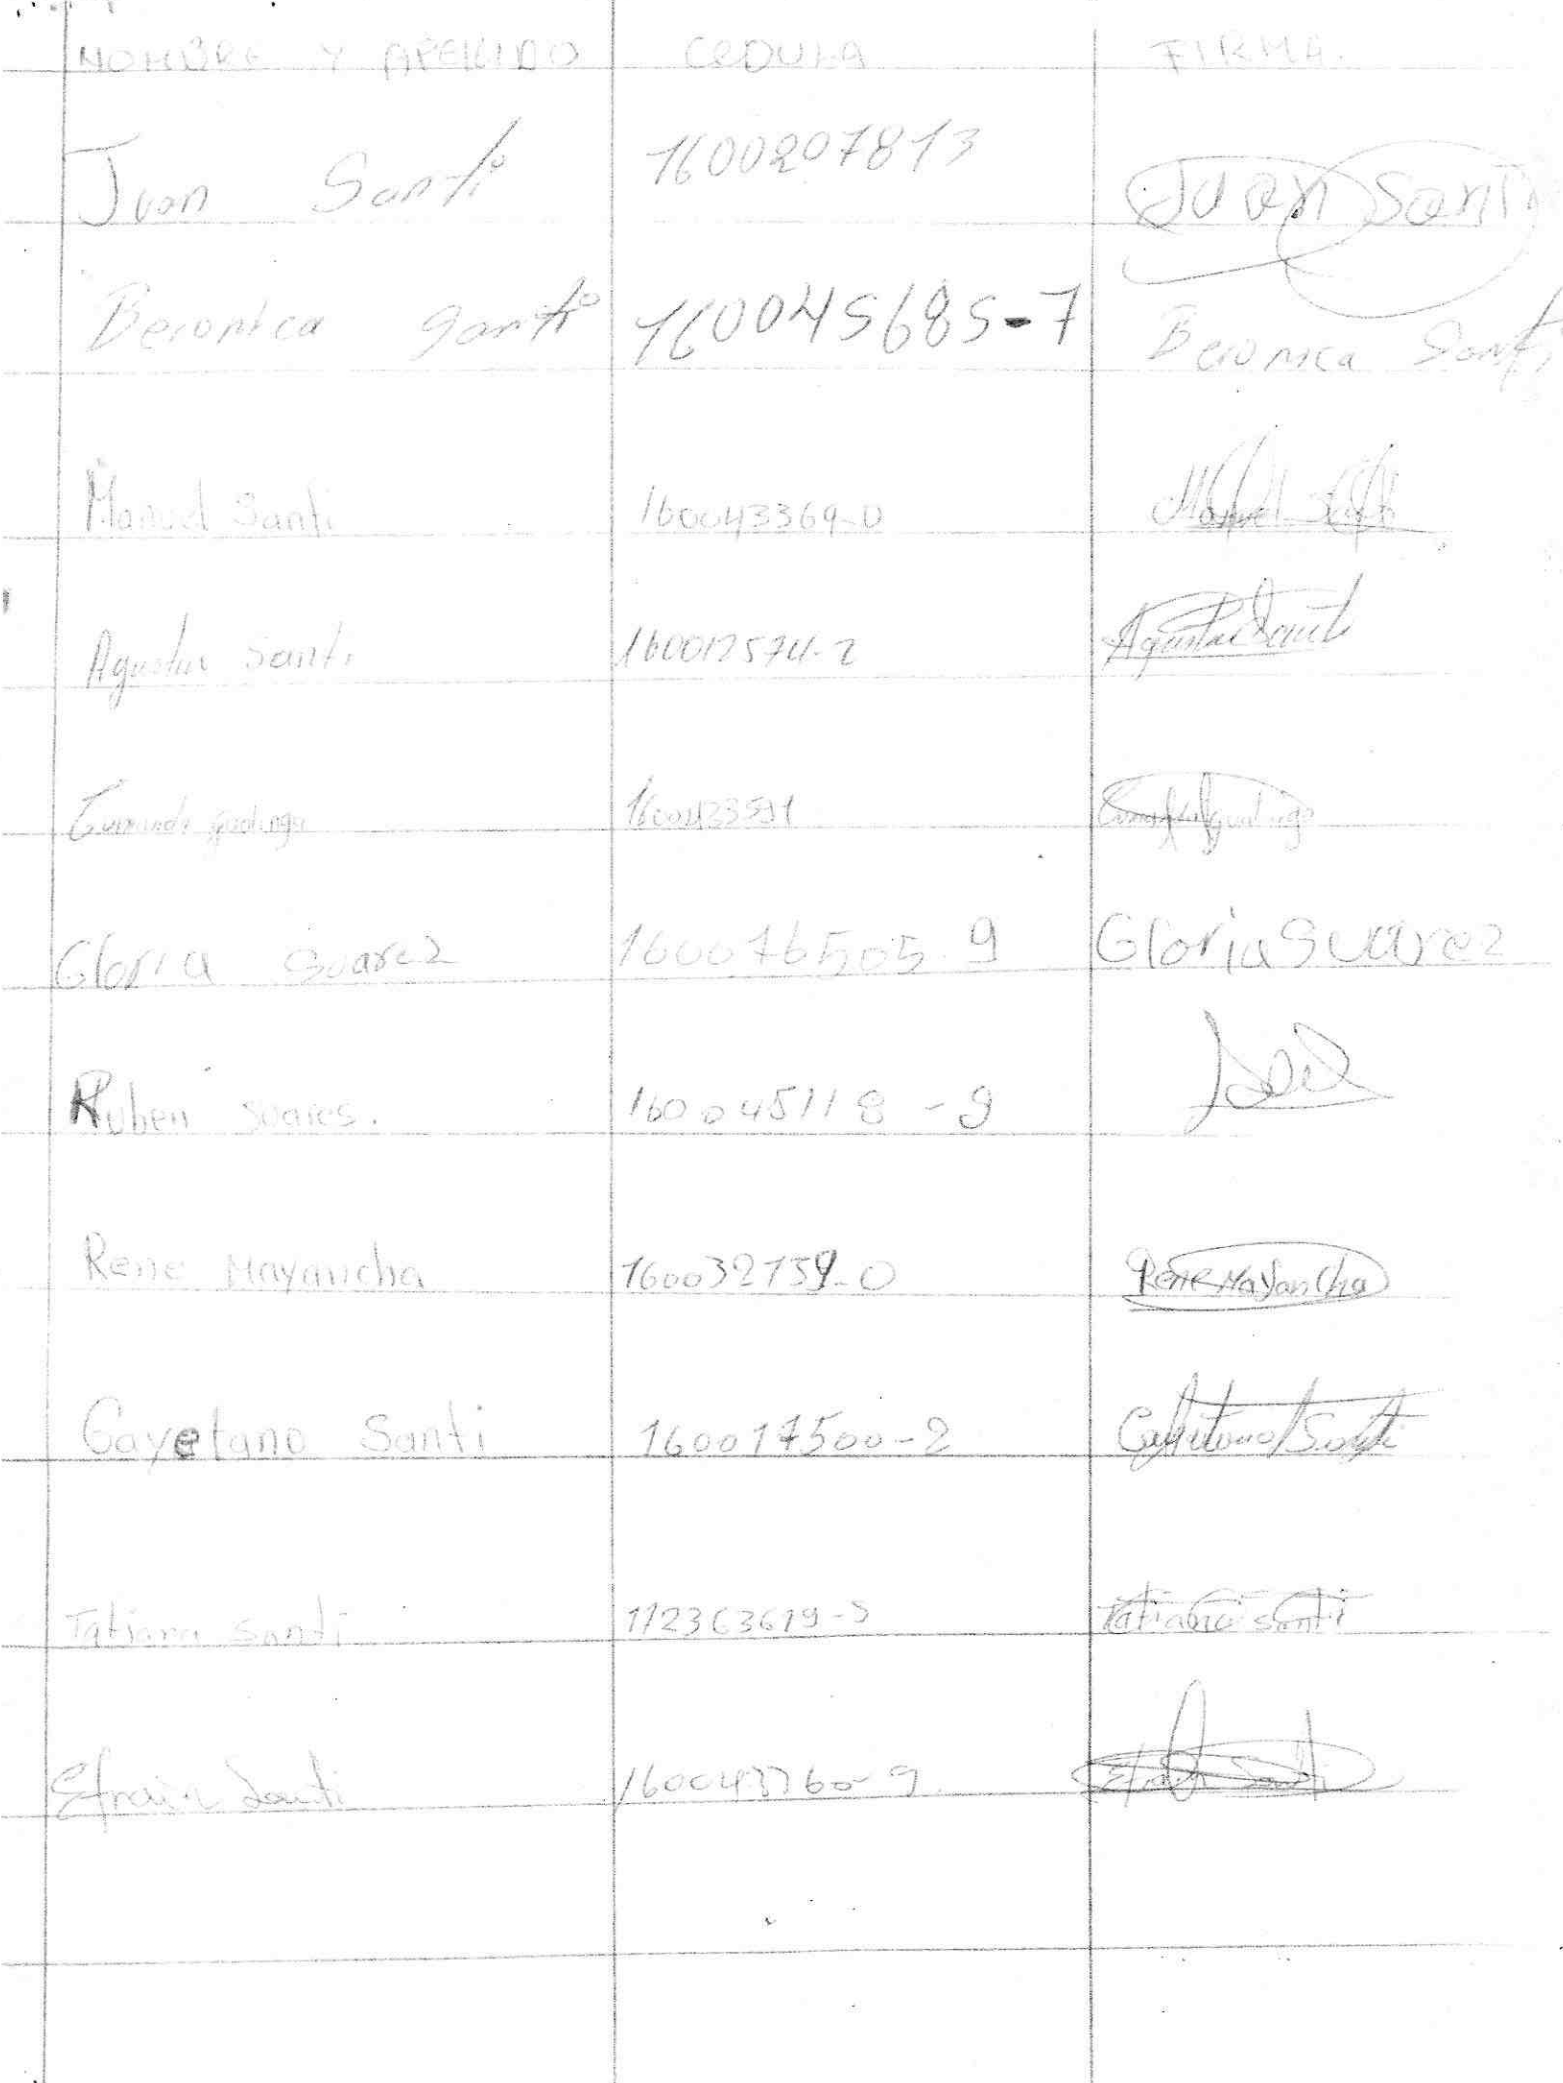 NOMBRE Y APELLIDO CEDULA FIRMA.
Juan Santi 1600207813 JUAN Santi
Beronica Santi 160045685-7 Beronica Santi
Manuel Santi 160043369-0 Manuel Santi
Agustin Santi 160017574-2 Agustin Santi
gualinga 1600433591 gualinga
Gloria Suarez 160076505-9 Gloria Suarez
Ruben suares. 160045118-9
Rene Mayancha 160032139-0 Rene Mayancha
Cayetano Santi 160017500-2 Cayetano Santi
Tatiana Santi Tatiana santi
Efrain Santi 160043760-9 Efrain Santi